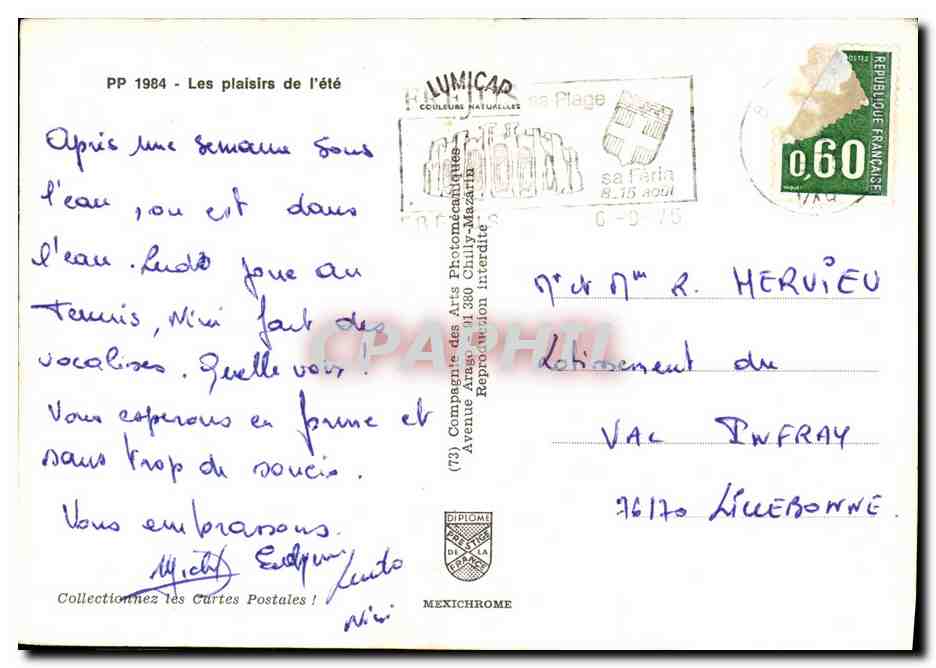 PP 1984 - Les plaisirs de l'été
Après une semaine sous
l'eau, on est dans
l'eau. Ludo joue au
Tennis, Nini fait des
vocalises. Quelle voix!
Vous esperons en forme et
sans trop de soucis.
Vous embrassons.
Nini
Collectionnez les Cartes Postales !
LUMICAP
COULEURS NATURELLES
sa Plage
sa Féria
8_15 août
FREJUS
6-8-75
(73) Compagnie des Arts Photomécaniques
Avenue Arago 91 380 Chilly-Mazarin
Reproduction interdite
DIPLOME
PRESTIGE
DE LA
FRANCE
MEXICHROME
POSTES
REPUBLIQUE FRANÇAISE
0,60
Mr et Mme R. HERVIEU
Lotissement du
VAL INFRAY
76170 LILLEBONNE
CPARHTI